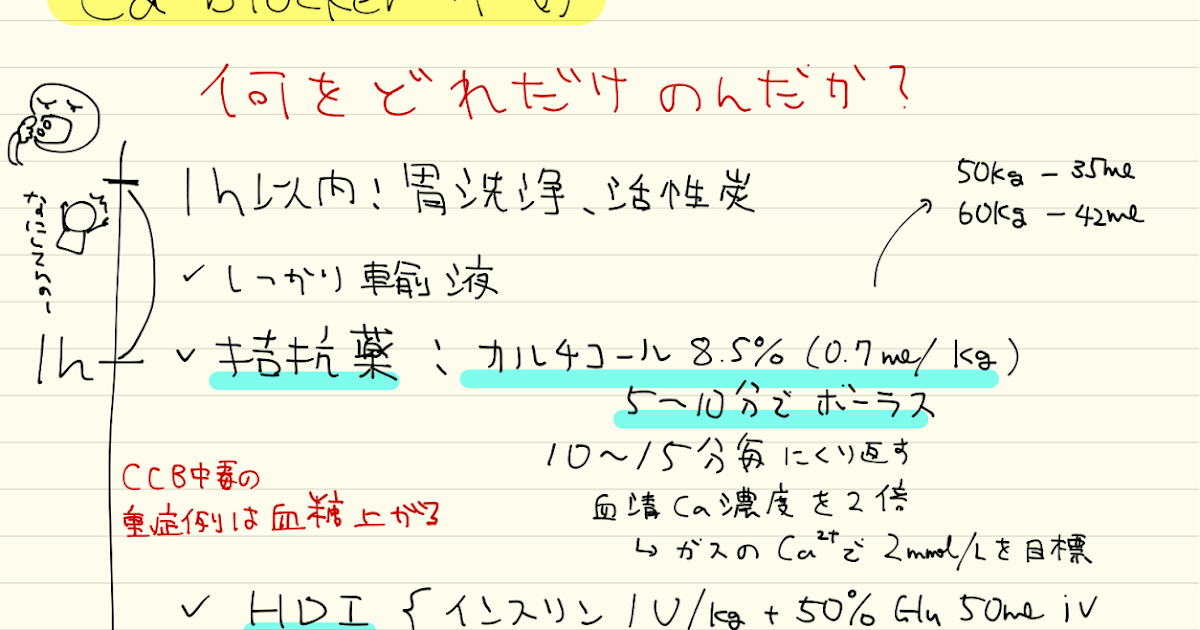 Ca Blocker 中毒
何をどれだけのんだか?
1h以内!胃洗浄、活性炭
50kg - 35ml
60kg - 42ml
なにしてんのー
✓ しっかり輸液
1h
✓ 拮抗薬:カルチコール 8.5% (0.7ml/kg)
5~10分でボーラス
10~15分毎にくり返す
CCB中毒の
重症例は血糖上がる
血清Ca濃度を2倍
↳ ガスのCa²⁺で 2mmol/Lを目標
✓ HDI { インスリン 1U/kg + 50% Glu 50ml iv